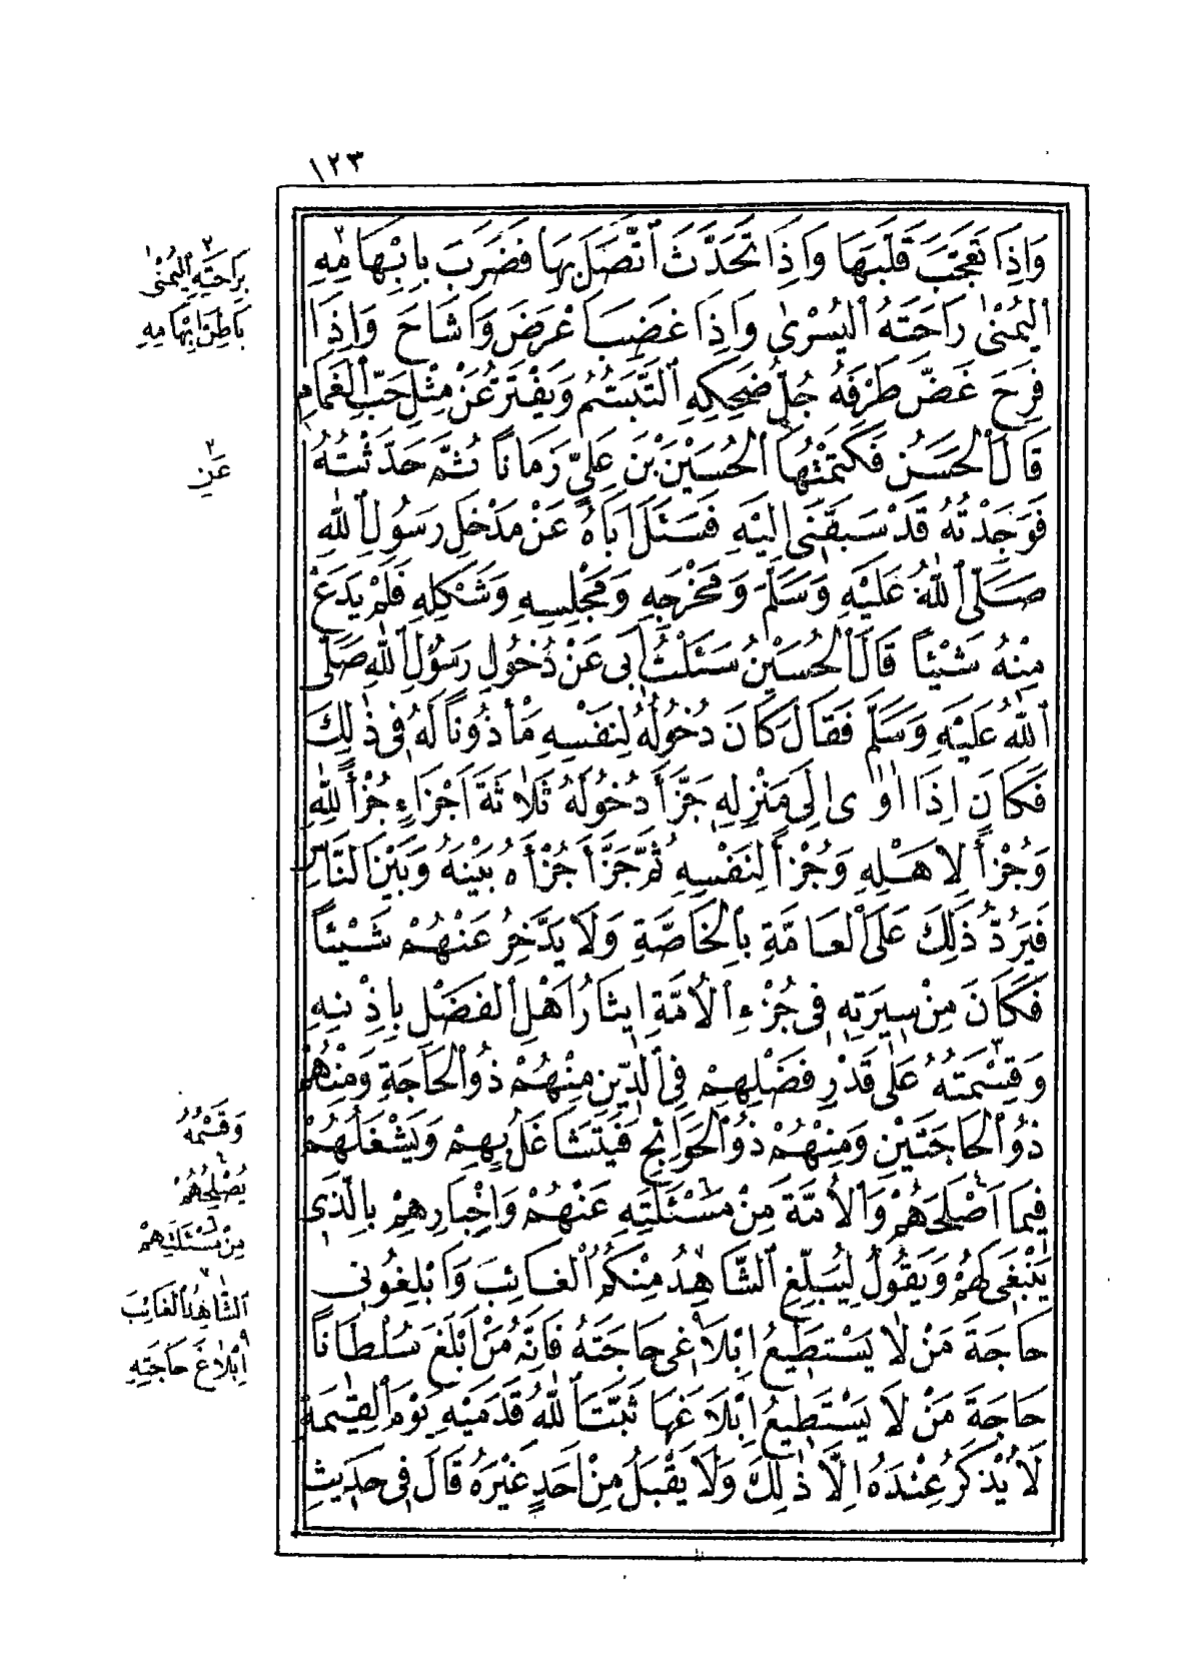 ١٢٣
وَاِذَا تَعَجَّبَ قَلَبَهَا وَاِذَا تَحَدَّثَ ٱتَّصَلَ بِهَا فَضَرَبَ بِاِبْهَامِهِ
ٱلْيُمْنٰى رَاحَتَهُ ٱلْيُسْرٰى وَاِذَا غَضِبَ اَعْرَضَ وَاَشَاحَ وَاِذَا
فَرِحَ غَضَّ طَرْفَهُ جُلُّ ضَحِكِهِ ٱلتَّبَسُّمُ وَيَفْتَرُّ عَنْ مِثْلِ حَبِّ ٱلْغَمَامِ
قَالَ ٱلْحَسَنُ فَكَتَمْتُهَا ٱلْحُسَيْنَ بْنَ عَلِيٍّ زَمَانًا ثُمَّ حَدَّثْتُهُ
فَوَجَدْتُهُ قَدْ سَبَقَنِى اِلَيْهِ فَسَئَلَ اَبَاهُ عَنْ مَدْخَلِ رَسُولِ ٱللّٰهِ
صَلَّى ٱللّٰهُ عَلَيْهِ وَسَلَّمَ وَمَخْرَجِهِ وَمَجْلِسِهِ وَشَكْلِهِ فَلَمْ يَدَعْ
مِنْهُ شَيْئًا قَالَ ٱلْحُسَيْنُ سَئَلْتُ اَبِى عَنْ دُخُولِ رَسُولِ ٱللّٰهِ صَلَّى
ٱللّٰهُ عَلَيْهِ وَسَلَّمَ فَقَالَ كَانَ دُخُولُهُ لِنَفْسِهِ مَأْذُونًا لَهُ فِى ذٰلِكَ
فَكَانَ اِذَا اَوٰى اِلَى مَنْزِلِهِ جَزَّأَ دُخُولَهُ ثَلَاثَةَ اَجْزَاءٍ جُزْأً لِلّٰهِ
وَجُزْأً لِاَهْلِهِ وَجُزْأً لِنَفْسِهِ ثُمَّ جَزَّأَ جُزْأَهُ بَيْنَهُ وَبَيْنَ ٱلنَّاسِ
فَيَرُدُّ ذٰلِكَ عَلَى ٱلْعَامَّةِ بِٱلْخَاصَّةِ وَلَا يَدَّخِرُ عَنْهُمْ شَيْئًا
فَكَانَ مِنْ سِيرَتِهِ فِى جُزْءِ ٱلْاُمَّةِ اِيثَارُ اَهْلِ ٱلْفَضْلِ بِاِذْنِهِ
وَقِسْمَتُهُ عَلٰى قَدْرِ فَضْلِهِمْ فِى ٱلدِّينِ مِنْهُمْ ذُو ٱلْحَاجَةِ وَمِنْهُمْ
ذُو ٱلْحَاجَتَيْنِ وَمِنْهُمْ ذُو ٱلْحَوَائِجِ فَيَتَشَاغَلُ بِهِمْ وَيَشْغَلُهُمْ
فِيمَا اَصْلَحَهُمْ وَٱلْاُمَّةَ مِنْ مَسْئَلَتِهِ عَنْهُمْ وَاِخْبَارِهِمْ بِالَّذِى
يَنْبَغِى لَهُمْ وَيَقُولُ لِيُبَلِّغِ ٱلشَّاهِدُ مِنْكُمُ ٱلْغَائِبَ وَاَبْلِغُونِى
حَاجَةَ مَنْ لَا يَسْتَطِيعُ اِبْلَاغِى حَاجَتَهُ فَاِنَّهُ مَنْ اَبْلَغَ سُلْطَانًا
حَاجَةَ مَنْ لَا يَسْتَطِيعُ اِبْلَاغَهَا ثَبَّتَ ٱللّٰهُ قَدَمَيْهِ يَوْمَ ٱلْقِيٰمَةِ
لَا يُذْكَرُ عِنْدَهُ اِلَّا ذٰلِكَ وَلَا يَقْبَلُ مِنْ اَحَدٍ غَيْرَهُ قَالَ فِى حَدِيثِ
٢
بِرَاحَتِهِ ٱلْيُمْنٰى
بَاطِنَ اِبْهَامِهِ
٢
عَنِ
وَقَسْمُهُ
٤
يُصْلِحُهُمْ
٦
مِنْ مَسْئَلَتِهِمْ
٧
ٱلشَّاهِدُ ٱلْغَائِبَ
٩
اِبْلَاغَ حَاجَتِهِ